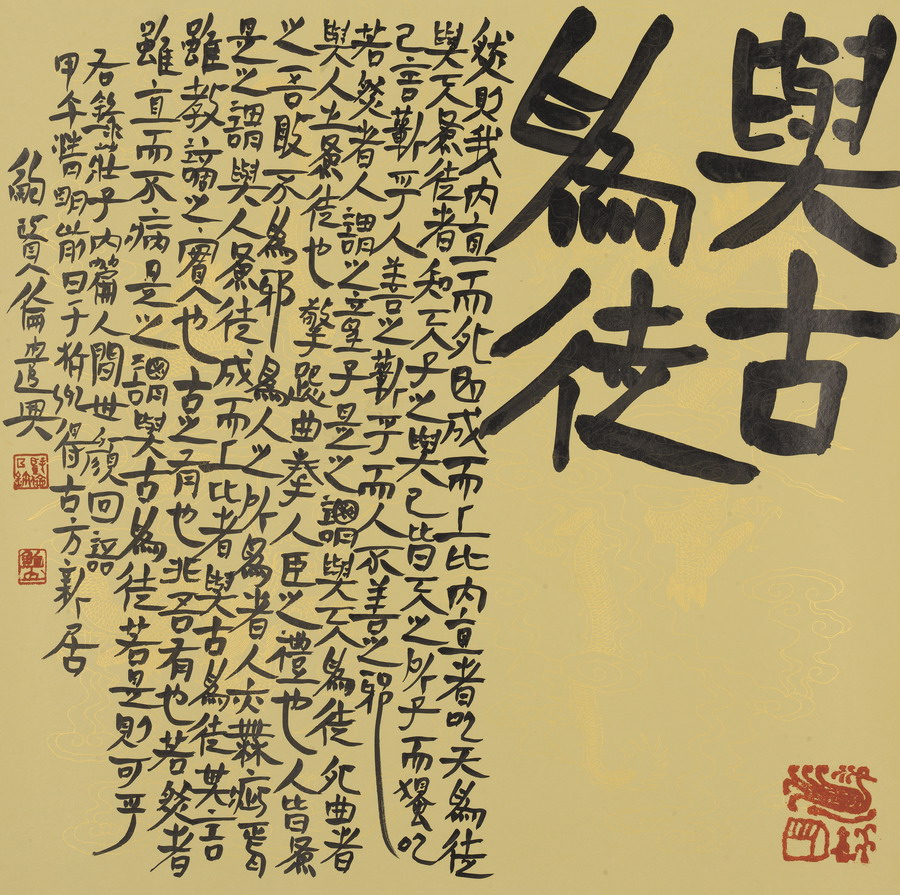 與古
為徒
然則我內直而外曲成而上比內直者以天為徒
與天為徒者知天子之與己皆天之所子而獨以
己言蘄乎人善之蘄乎而人不善之邪
若然者人謂之童子是之謂與天為徒外曲者
與人之為徒也擎跽曲拳人臣之禮也人皆為
之吾敢不為邪為人之所為者人亦無疵焉
是之謂與人為徒成而上比者與古為徒其言
雖教謫之實也古之有也非吾有也若然者
雖直而不病是之謂與古為徒若是則可乎
右錄莊子內篇人間世顏回語
甲午清明前日于得古方新居
鮑賢倫興